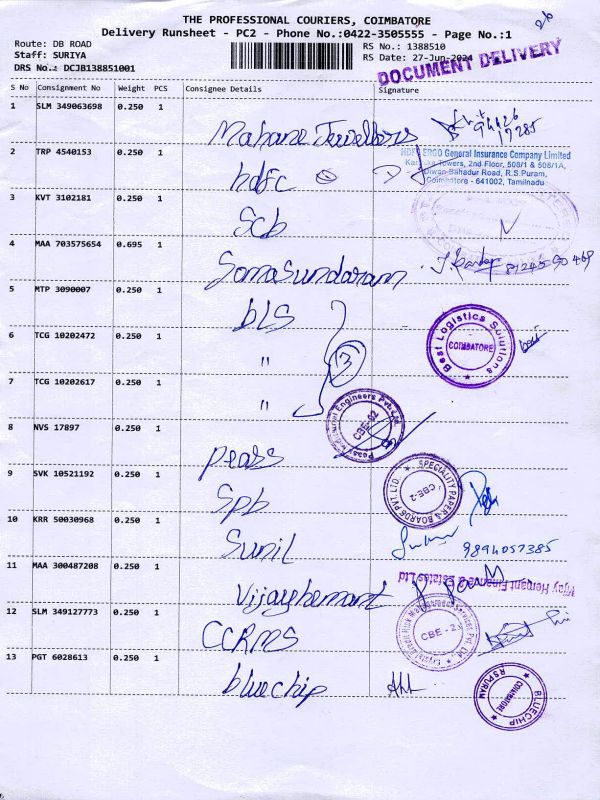 THE PROFESSIONAL COURIERS, COIMBATORE
Delivery Runsheet - PC2 - Phone No.:0422-3505555 - Page No.:1
Route: DB ROAD
Staff: SURIYA
DRS No.: DCJB138851001
RS No.: 1388510
RS Date: 27-Jun-2024
DOCUMENT DELIVERY
S No Consignment No Weight PCS Consignee Details Signature
1 SLM 349063698 0.250 1
Mahane Jewellers
2 TRP 4540153 0.250 1
hdfc
HDFC ERGO General Insurance Company Limited
Towers, 2nd Floor, 508/1 & 508/1A,
Diwan Bahadur Road, R.S.Puram,
Coimbatore - 641002, Tamilnadu
3 KVT 3102181 0.250 1
Scb
4 MAA 703575654 0.695 1
Somasundaram
5 MTP 3090007 0.250 1
bLS
Best Logistics Solutions
COIMBATORE
6 TCG 10202472 0.250 1
"
3
7 TCG 10202617 0.250 1
"
Engineers Pvt. Ltd.
CBE-02
8 NVS 17897 0.250 1
pears
9 SVK 10521192 0.250 1
Spb
SPECIALITY PAPER & BOARDS PVT. LTD.
CBE-2
10 KRR 50030968 0.250 1
Sunil
9894057385
11 MAA 300487208 0.250 1
Vijayhemant
Vijay Hemant Finance & Estates Ltd
12 SLM 349127773 0.250 1
CCRMS
CBE - 2
13 PGT 6028613 0.250 1
bluechip
BLUECHIP
COIMBATORE
RSPURAM